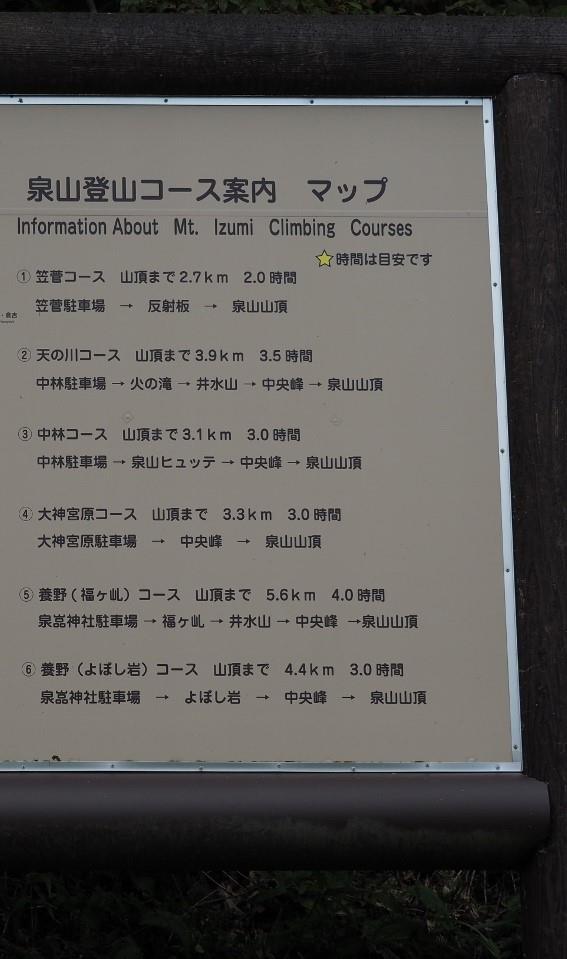 泉山登山コース案内 マップ
Information About Mt. Izumi Climbing Courses
☆時間は目安です
① 笠菅コース 山頂まで2.7km 2.0時間
笠菅駐車場 → 反射板 → 泉山山頂
② 天の川コース 山頂まで3.9km 3.5時間
中林駐車場 → 火の滝 → 井水山 → 中央峰 → 泉山山頂
③ 中林コース 山頂まで3.1km 3.0時間
中林駐車場 → 泉山ヒュッテ → 中央峰 → 泉山山頂
④ 大神宮原コース 山頂まで 3.3km 3.0時間
大神宮原駐車場 → 中央峰 → 泉山山頂
⑤ 養野(福ヶ乢)コース 山頂まで 5.6km 4.0時間
泉嵓神社駐車場 → 福ヶ乢 → 井水山 → 中央峰 →泉山山頂
⑥ 養野(よぼし岩)コース 山頂まで 4.4km 3.0時間
泉嵓神社駐車場 → よぼし岩 → 中央峰 → 泉山山頂